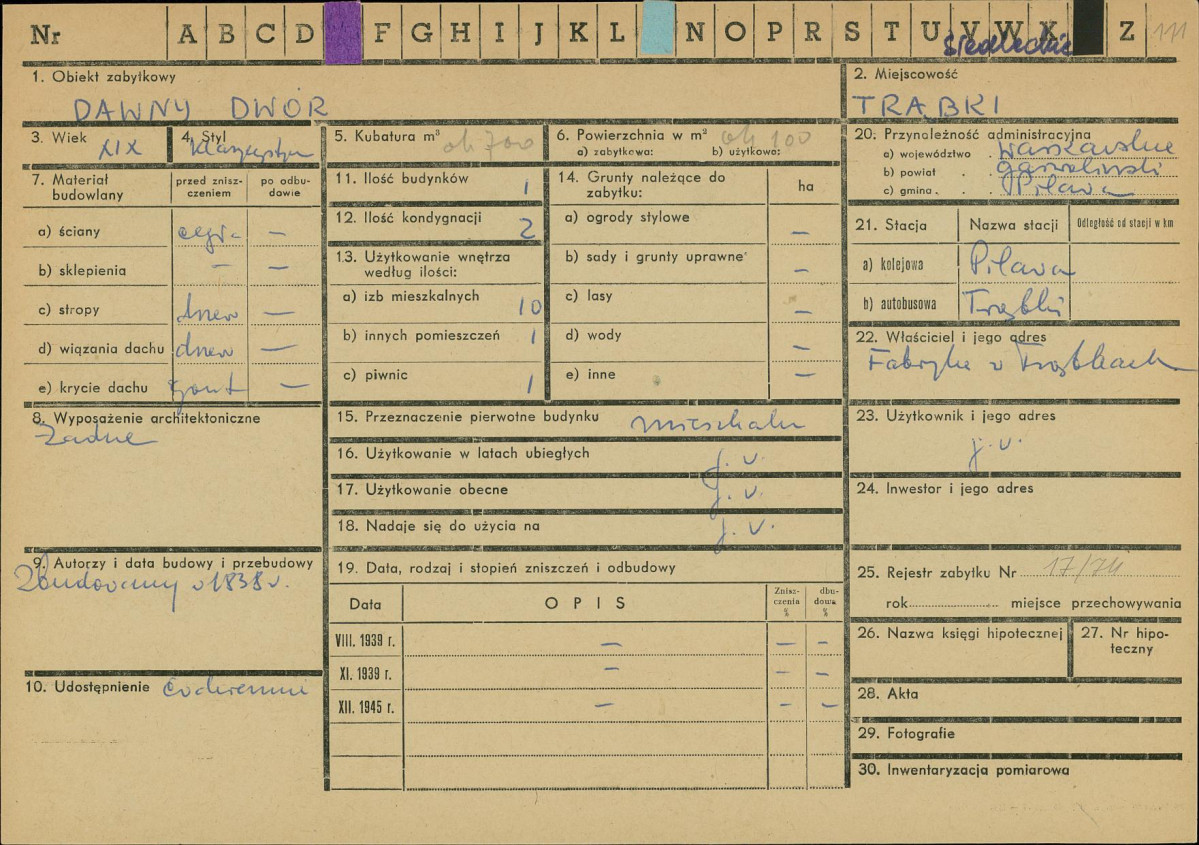 Nr A B C D F G H I J K L N O P R S T U V W X Z 111
siedleckie
1. Obiekt zabytkowy
DAWNY DWÓR
2. Miejscowość
TRĄBKI
3. Wiek XIX
4. Styl
5. Kubatura m³ ok 700
6. Powierzchnia w m² ok 100
a) zabytkowa: b) użytkowa:
7. Materiał budowlany
przed znisz-
czeniem
po odbu-
dowie
a) ściany cegł. —
b) sklepienia — —
c) stropy drew —
d) wiązania dachu drew —
e) krycie dachu gont —
8. Wyposażenie architektoniczne
Żadne
9. Autorzy i data budowy i przebudowy
Zbudowany w 1838 r.
10. Udostępnienie codziennie
11. Ilość budynków 1
12. Ilość kondygnacji 2
13. Użytkowanie wnętrza
według ilości:
a) izb mieszkalnych 10
b) innych pomieszczeń 1
c) piwnic 1
14. Grunty należące do
zabytku:
ha
a) ogrody stylowe —
b) sady i grunty uprawne —
c) lasy —
d) wody —
e) inne —
15. Przeznaczenie pierwotne budynku mieszkaln
16. Użytkowanie w latach ubiegłych j. w.
17. Użytkowanie obecne j. w.
18. Nadaje się do użycia na j. w.
19. Data, rodzaj i stopień zniszczeń i odbudowy
Data OPIS
Znisz-
czenia
%
dbu-
dowa
%
VIII. 1939 r. — — —
XI. 1939 r. — — —
XII. 1945 r. — — —
20. Przynależność administracyjna
a) województwo . warszawskie
b) powiat . . garwoliński
c) gmina . . Pilawa
21. Stacja Nazwa stacji Odległość od stacji w km
a) kolejowa Pilawa
b) autobusowa Trąbki
22. Właściciel i jego adres
Fabryka w Trąbkach
23. Użytkownik i jego adres
j. w.
24. Inwestor i jego adres
25. Rejestr zabytku Nr 17/74
rok miejsce przechowywania
26. Nazwa księgi hipotecznej
27. Nr hipo-
teczny
28. Akta
29. Fotografie
30. Inwentaryzacja pomiarowa